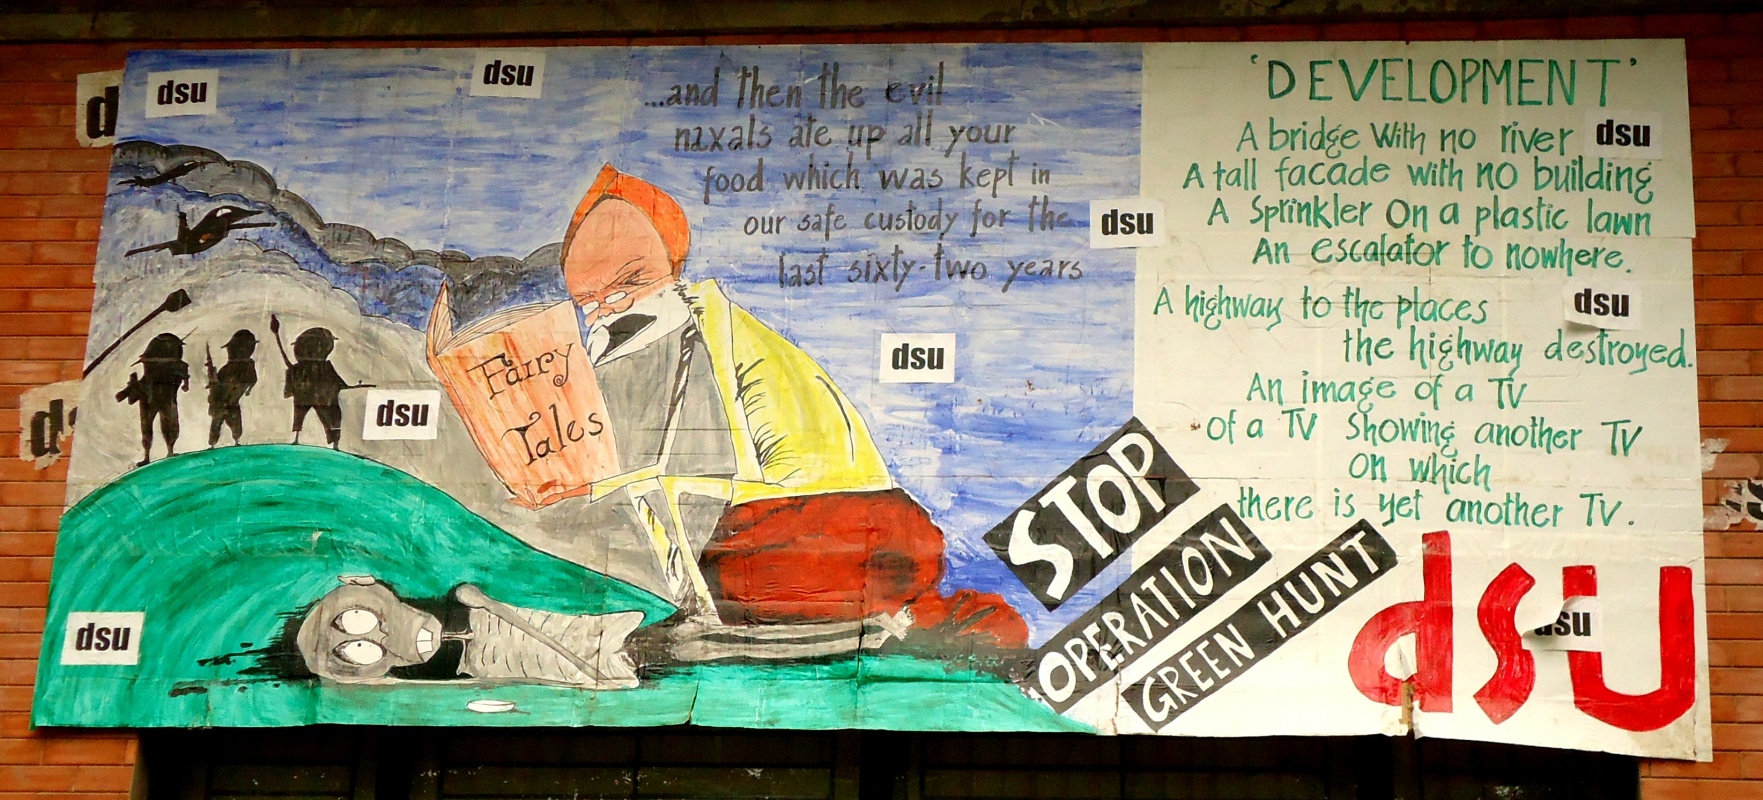 dsu
dsu
...and then the evil
naxals ate up all your
food which was kept in
our safe custody for the
last sixty-two years
dsu
dsu
Fairy
Tales
dsu
dsu
'DEVELOPMENT'
A bridge With no river
dsu
A tall facade with no building
A Sprinkler On a plastic lawn
An escalator to nowhere.
A highway to the places
dsu
the highway destroyed.
An image of a TV
of a TV Showing another TV
on which
there is yet another TV.
STOP
OPERATION
GREEN HUNT
dsu
dsu